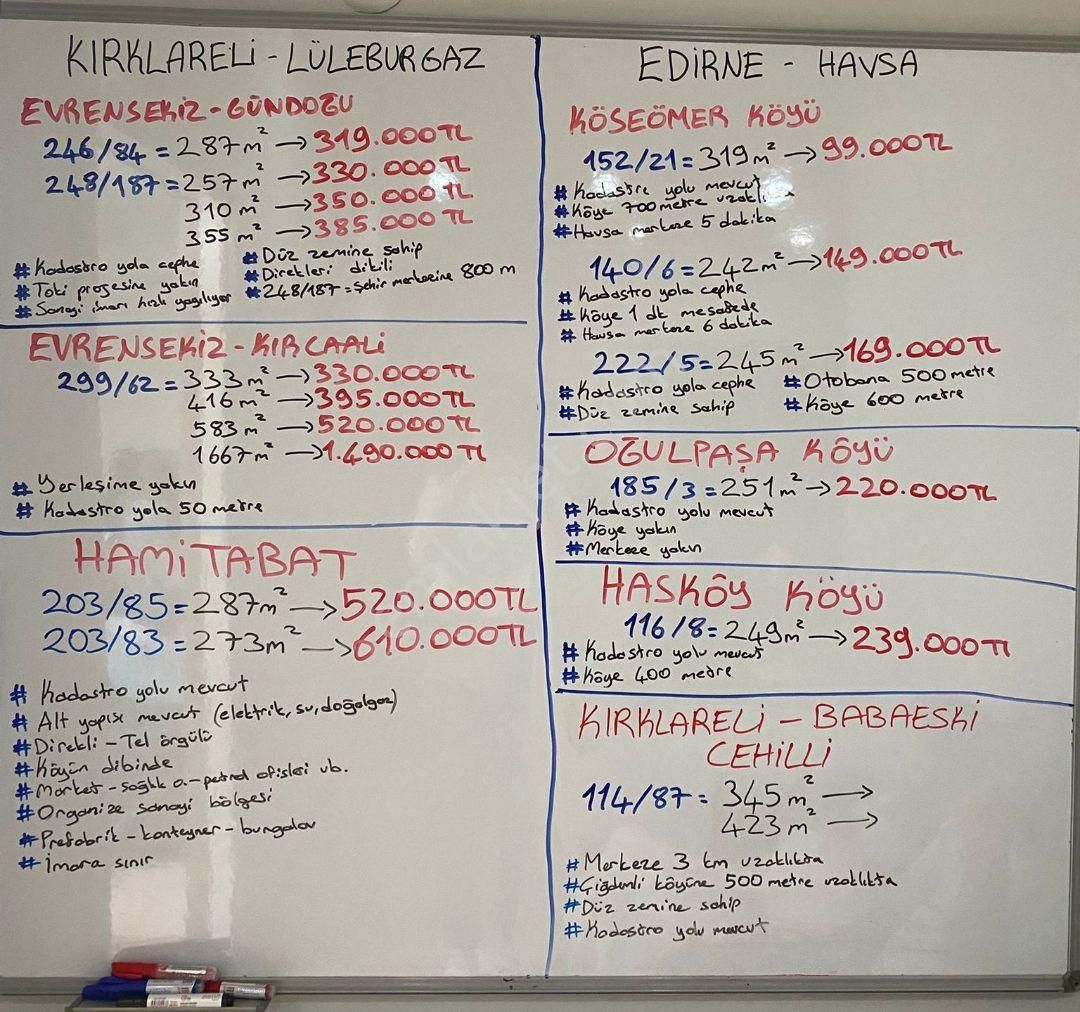 KIRKLARELİ - LÜLEBURGAZ
EVRENSEKİZ - GÜNDOĞU
246/84 = 287 m² → 319.000 TL
248/187 = 257 m² → 330.000 TL
310 m² → 350.000 TL
355 m² → 385.000 TL
# Kadastro yola cephe
# Toki projesine yakın
# Sanayi imarı hızlı yayılıyor
# Düz zemine sahip
# Direkleri dikili
# 248/187 = Şehir merkezine 800 m
EVRENSEKİZ - KIRCAALİ
299/62 = 333 m² → 330.000 TL
416 m² → 395.000 TL
583 m² → 520.000 TL
1667 m² → 1.490.000 TL
# Yerleşime yakın
# Kadastro yola 50 metre
HAMİTABAT
203/85 = 287 m² → 520.000 TL
203/83 = 273 m² → 610.000 TL
# Kadastro yolu mevcut
# Alt yapısı mevcut (elektrik, su, doğalgaz)
# Direkli - Tel örgülü
# Köyün dibinde
# Market - sağlık o. - petrol ofisleri vb.
# Organize sanayi bölgesi
# Prefabrik - konteyner - bungalov
# İmara sınır
EDİRNE - HAVSA
KÖSEÖMER KÖYÜ
152/21 = 319 m² → 99.000 TL
# Kadastro yolu mevcut
# Köye 700 metre uzaklıkta
# Havsa merkeze 5 dakika
140/6 = 242 m² → 149.000 TL
# Kadastro yola cephe
# Köye 1 dk mesafede
# Havsa merkeze 6 dakika
222/5 = 245 m² → 169.000 TL
# Kadastro yola cephe
# Düz zemine sahip
# Otobana 500 metre
# Köye 600 metre
OĞULPAŞA KÖYÜ
185/3 = 251 m² → 220.000 TL
# Kadastro yolu mevcut
# Köye yakın
# Merkeze yakın
HASKÖY KÖYÜ
116/8 = 249 m² → 239.000 TL
# Kadastro yolu mevcut
# Köye 400 metre
KIRKLARELİ - BABAESKİ
CEHİLLİ
114/87 = 345 m² →
423 m² →
# Merkeze 3 km uzaklıkta
# Çiğdemli köyüne 500 metre uzaklıkta
# Düz zemine sahip
# Kadastro yolu mevcut